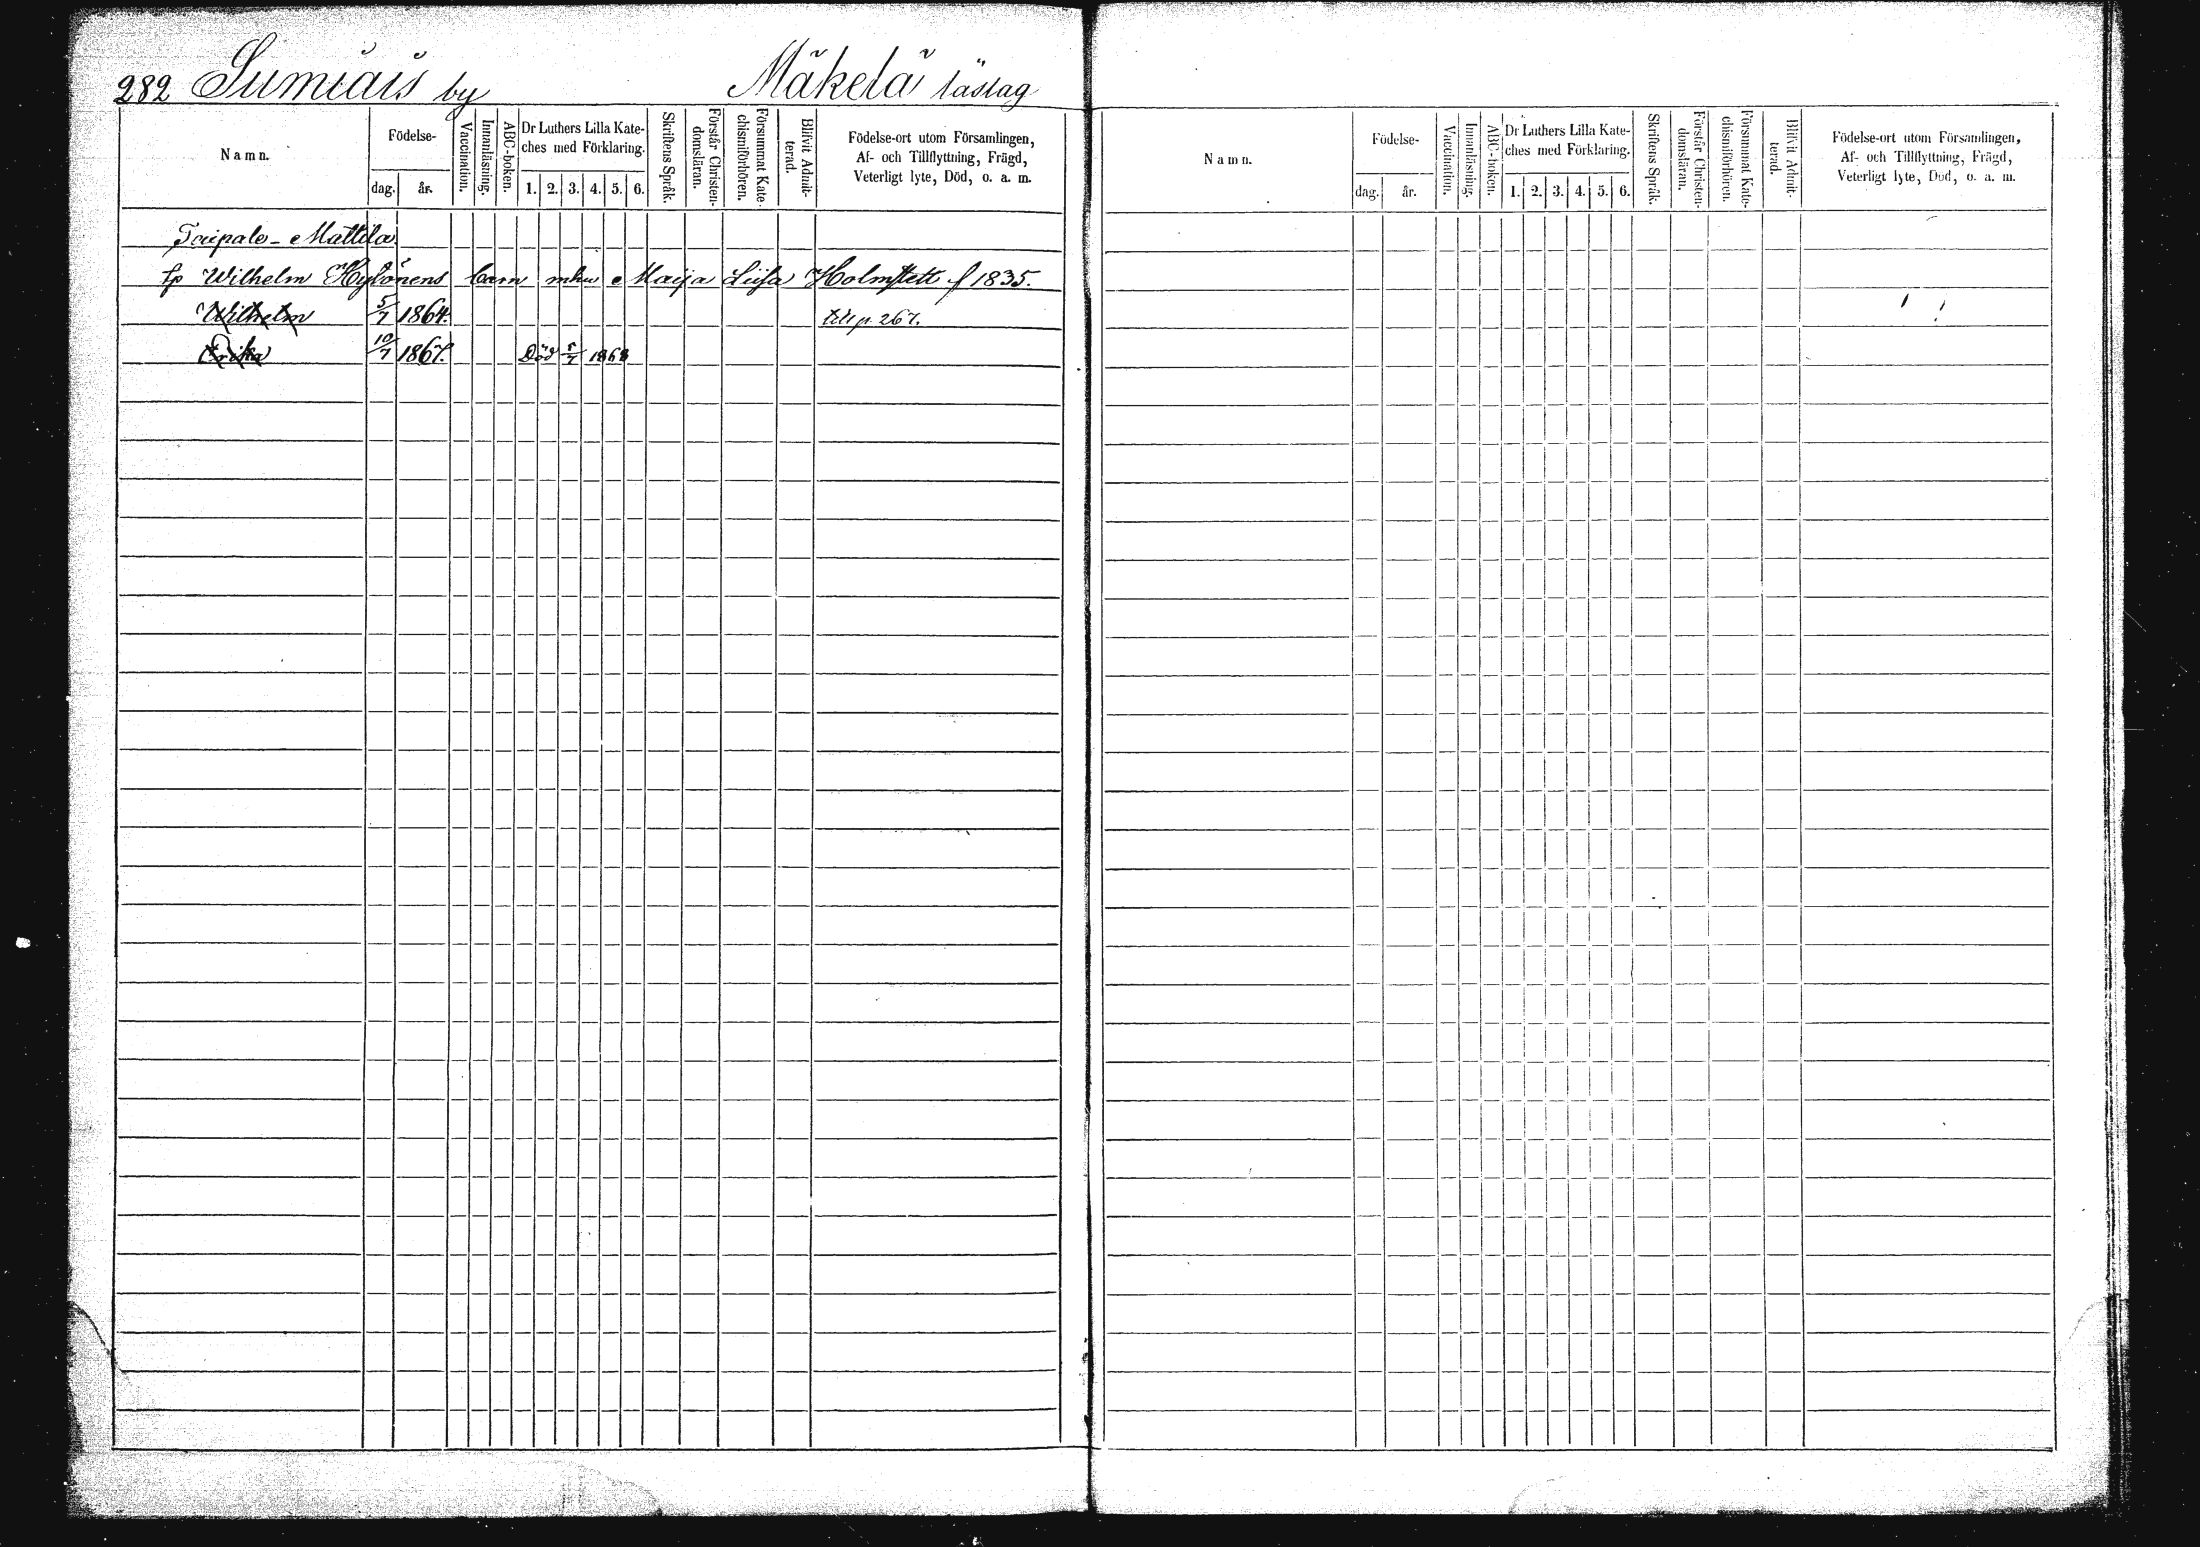 282 Sumiais by Mäkelä läslag
Namn.
Födelse-
dag. år.
Vaccination.
Innanläsning.
ABC-boken.
Dr Luthers Lilla Kate-
ches med Förklaring.
1. 2. 3. 4. 5. 6.
Skriftens Språk.
Förstår Christen-
domsläran.
Försummat Kate-
chismiförhören.
Blifvit Admit-
terad.
Födelse-ort utom Församlingen,
Af- och Tillflyttning, Frägd,
Veterligt lyte, Död, o. a. m.
Taipale-Mattila
Wilhelm Hytönens barn mhu Maija Liisa Holmstett f 1835.
Wilhelm 5/7 1864. till p. 267.
Erika 10/7 1867. Död 5/7 1868
Namn.
Födelse-
dag. år.
Vaccination.
Innanläsning.
ABC-boken.
Dr Luthers Lilla Kate-
ches med Förklaring.
1. 2. 3. 4. 5. 6.
Skriftens Språk.
Förstår Christen-
domsläran.
Försummat Kate-
chismiförhören.
Blifvit Admit-
terad.
Födelse-ort utom Församlingen,
Af- och Tillflyttning, Frägd,
Veterligt lyte, Död, o. a. m.